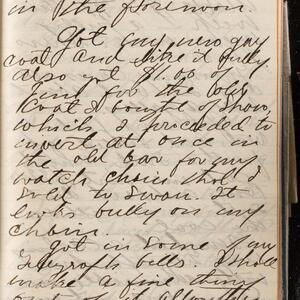 in the forenoon.
Got my new gray
coat and like it bully.
Also got $1.00 of
for the old
Coat I bought of Snow,
which I proceeded to
invert at once in
the old bar for my
watch chain that I
sold to Swan. It
looks bully on my
chain.
Got in some of my
Telegraph bills. I shall
make a fine thing
out of it